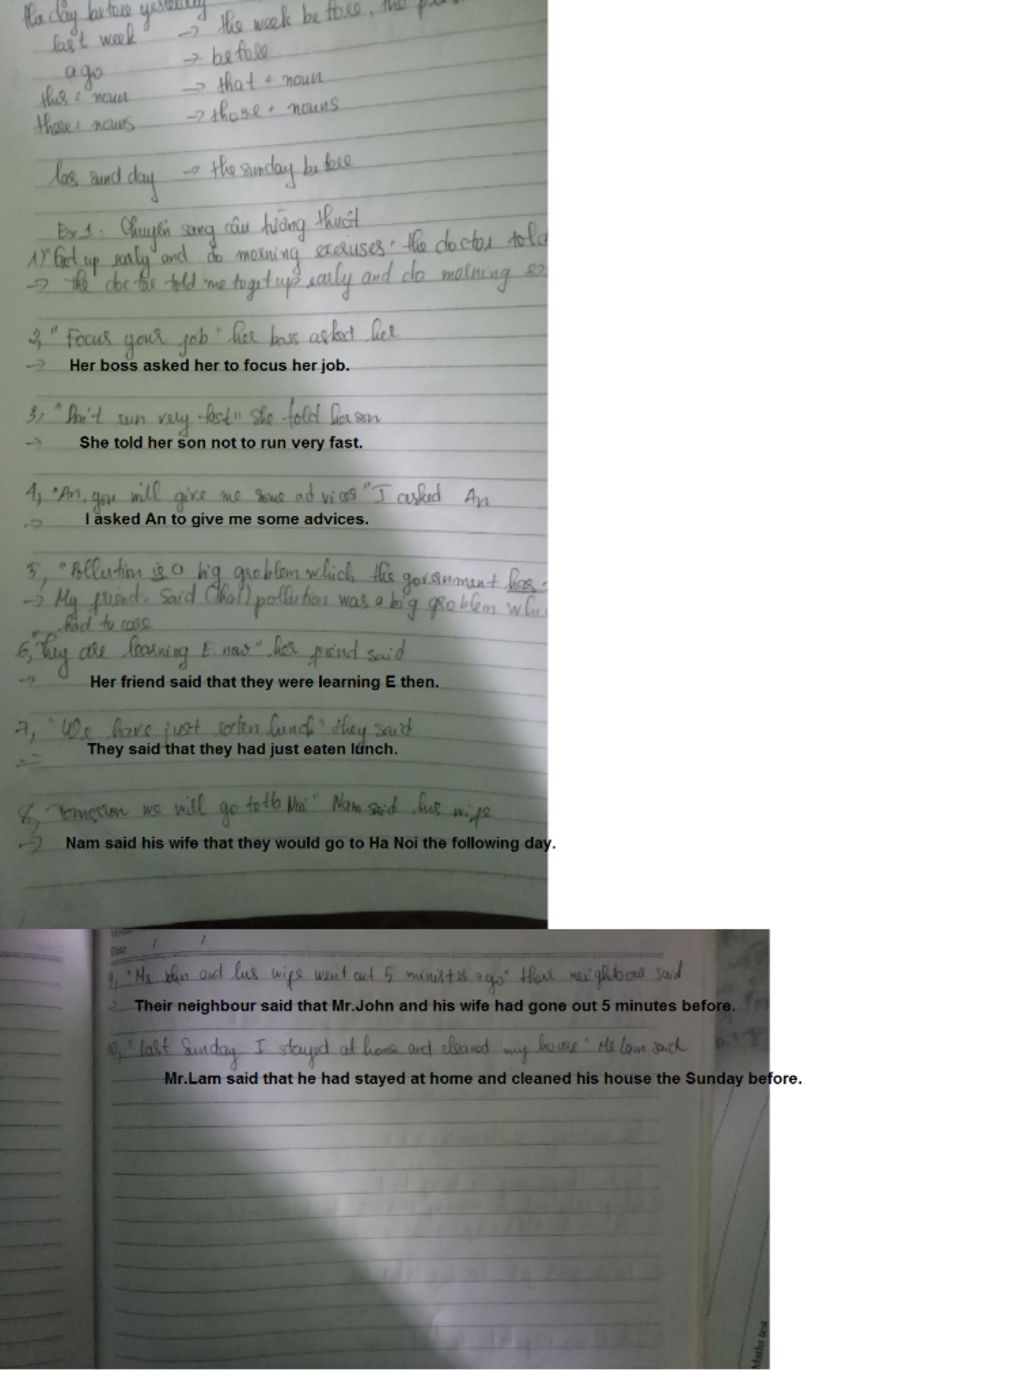 the day before yesterday
last week -> the week before, the
ago -> before
this + noun -> that + noun
these + nouns -> those + nouns
las sund day -> the sunday before
Ex 1: Chuyển sang câu tường thuật
1) "Get up early and do morning exercises" the doctor told
-> The doctor told me to get up early and do morning
2, "Focus your job" her boss asked her
-> Her boss asked her to focus her job.
3, "Don't run very fast" she told her son
-> She told her son not to run very fast.
4, "An, you will give me some advices" I asked An
-> I asked An to give me some advices.
5, "Pollution is a big problem which the government has
-> My friends said (that) pollution was a big problem
had to
6, "They are learning E now" her friend said
-> Her friend said that they were learning E then.
7, "We have just eaten lunch" they said
They said that they had just eaten lunch.
8, Tomorrow we will go to Hà Nội" Nam said his wife
-> Nam said his wife that they would go to Ha Noi the following day.
Date
9, "Mr John and his wife went out 5 minutes ago" their neighbour said
Their neighbour said that Mr.John and his wife had gone out 5 minutes before.
10, "last Sunday I stayed at home and cleaned my house" Mr Lam said
Mr.Lam said that he had stayed at home and cleaned his house the Sunday before.
Maths test